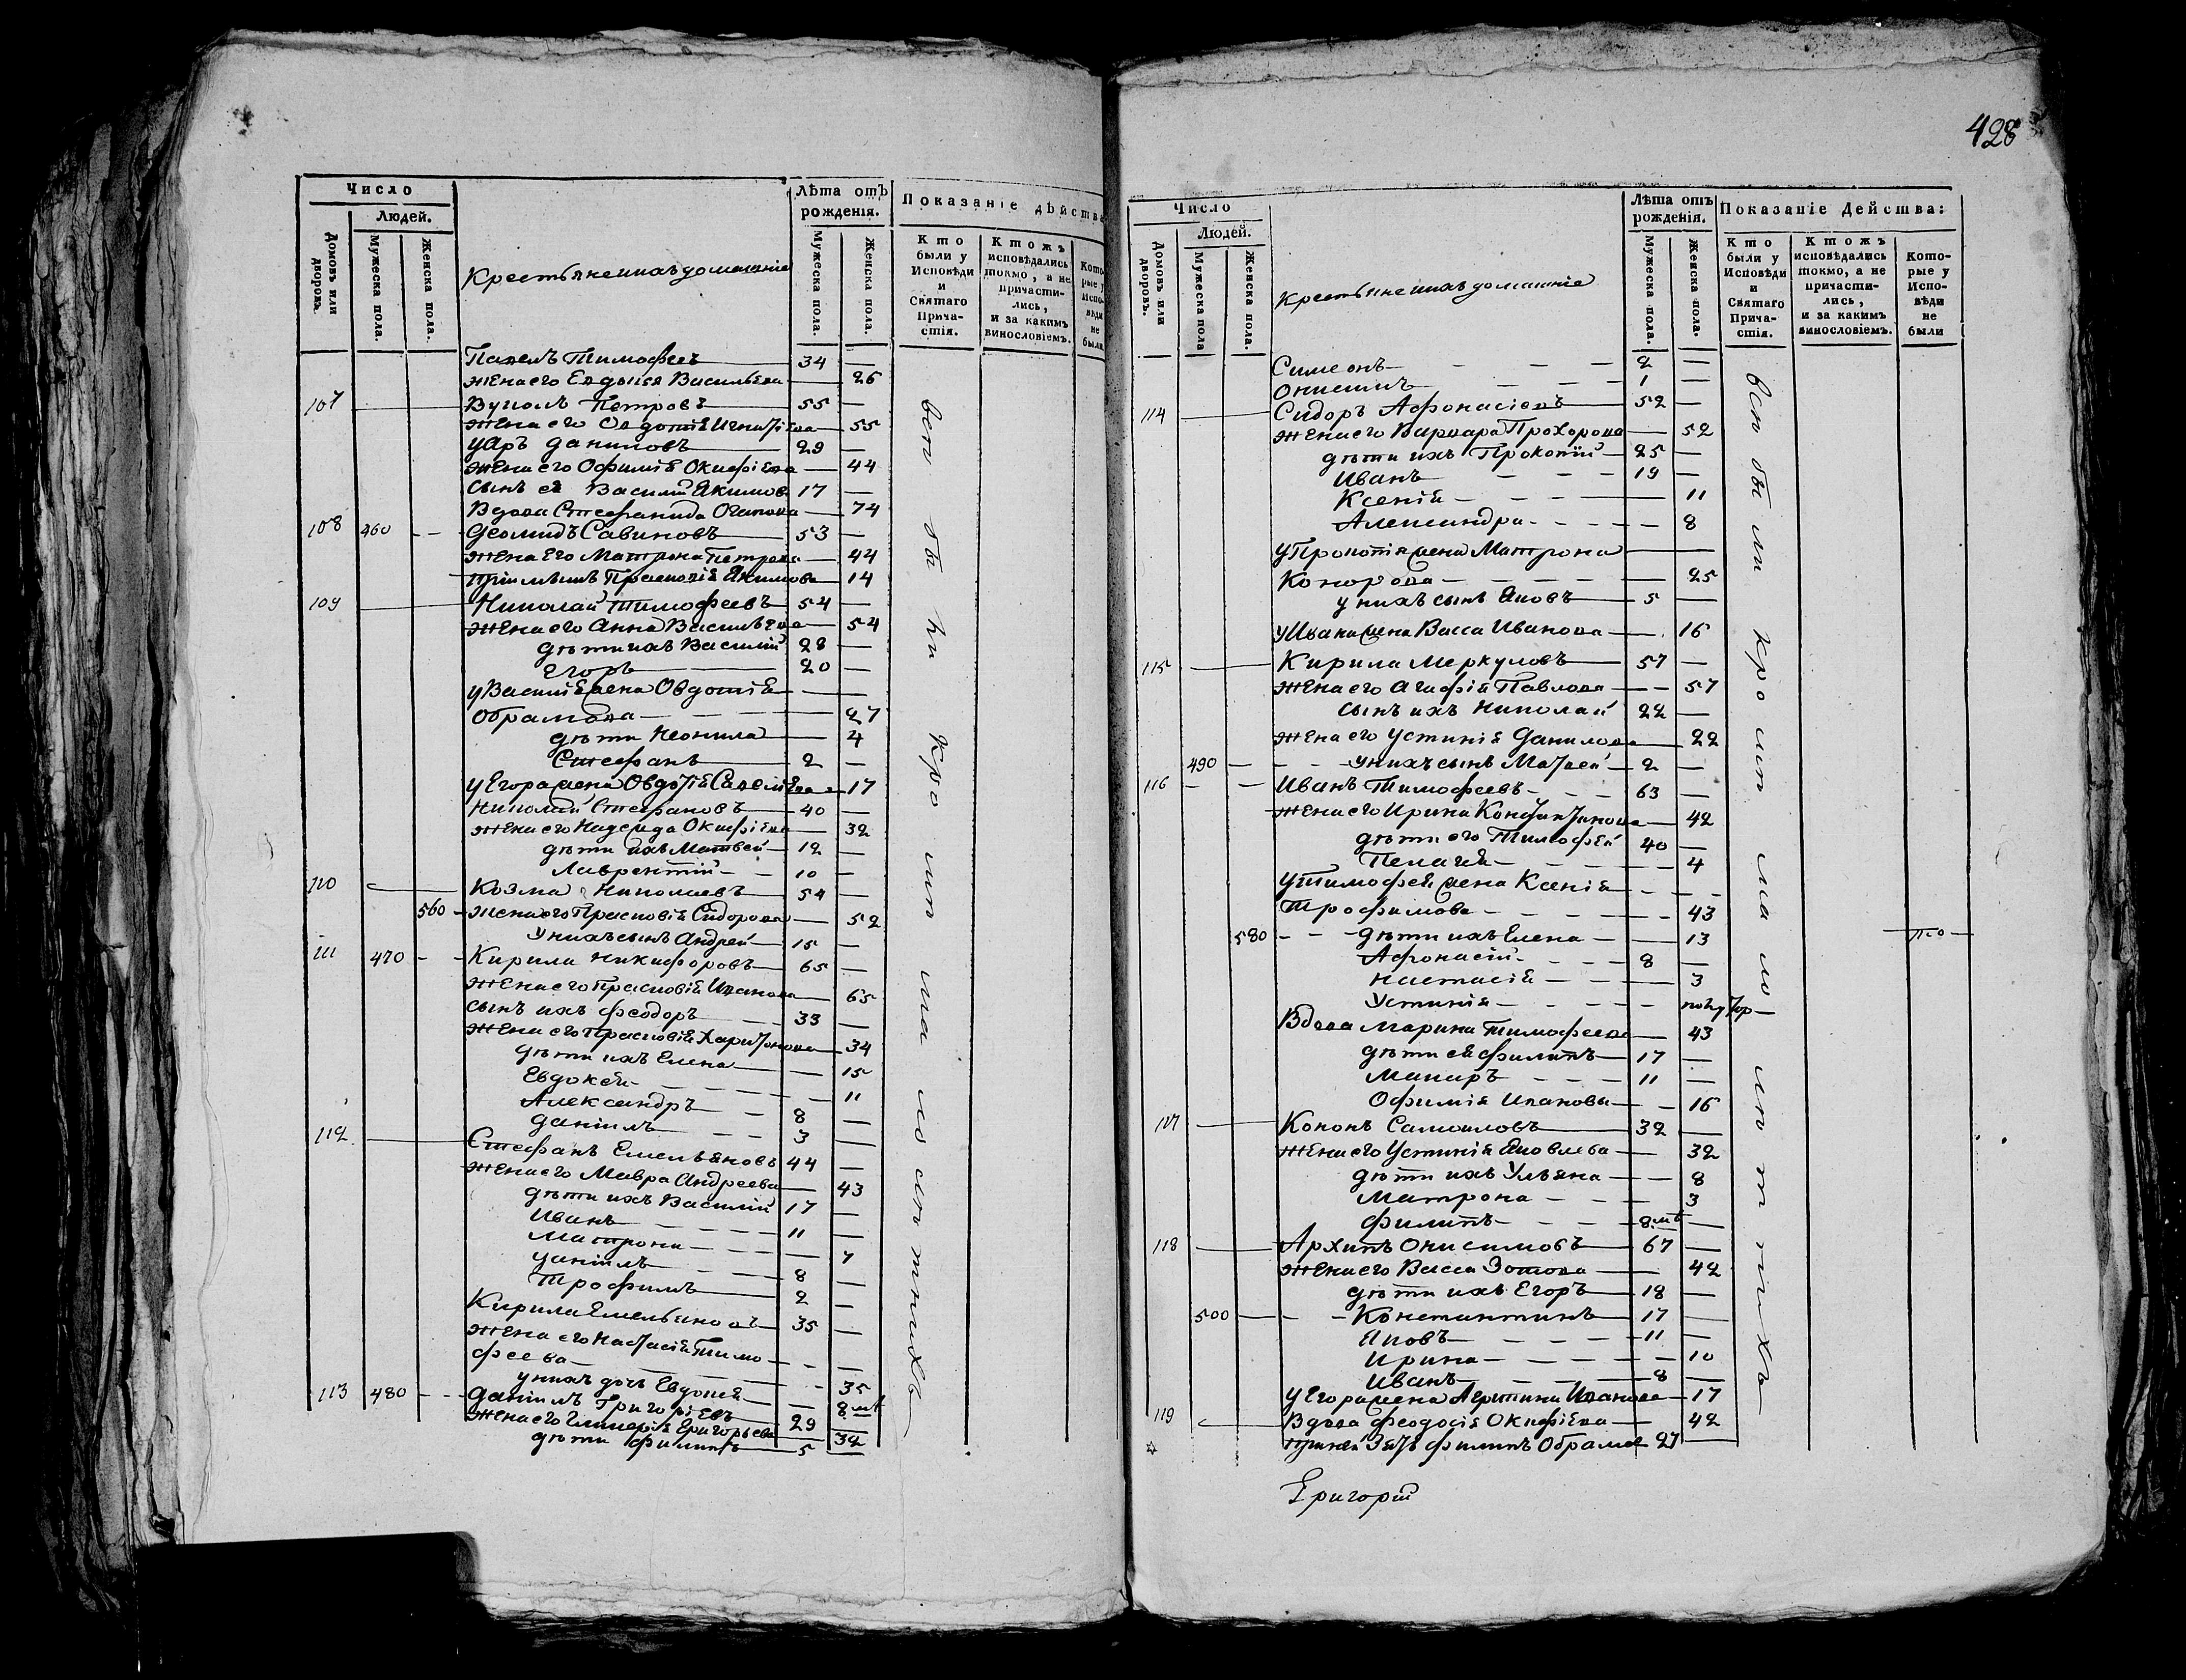 Число
Людей.
Домовъ или дворовъ.
Мужеска пола.
Женска пола.
Крестьяне ихъ домашніе
Лѣта отъ рожденія.
Мужеска пола.
Женска пола.
Показаніе дѣйства
Кто были у Исповѣди и Святаго Прича-стія.
Ктожъ исповѣдались токмо, а не причасти-лись, и за какимъ винословіемъ.
Кото-рые у Испо-вѣди не были
34 —
жена его Евдокея Васильева — 26
107 Петровъ 55 —
жена его — 55
Уаръ Даниловъ 29 —
жена его Офимія Окифіева — 44
сынъ ея Василій Якимовъ 17 —
Вдова Стефанида — 74
108 460 Савиновъ 53 —
жена его Матрона Петрова — 44
Прасковія Якимова — 14
109 Николай Тимофеевъ 54 —
жена его Анна Васильева — 54
дѣти ихъ Василій 28 —
Егоръ 20 —
у Василія жена Овдотія
Обрамова — 27
дѣти Неонила — 4
Стефанъ 2 —
у Егора жена Овдотія — 17
Николай Стефановъ 40 —
жена его Надежда Окифіева — 32
дѣти ихъ Матвей 12 —
Лаврентій 10 —
110 Козма Николаевъ 54 —
560 жена его Прасковія Сидорова — 52
у нихъ сынъ Андрей 15 —
111 470 Кирила Никифоровъ 65 —
жена его Прасковія Иванова — 65
сынъ ихъ Феодоръ 33 —
жена его Прасковія Харитонова — 34
дѣти ихъ Елена — 15
Евдокея — 11
Александръ 8 —
Даніилъ 3 —
112 Стефанъ Емельяновъ 44 —
жена его Мавра Андреева — 43
дѣти ихъ Василій 17 —
Иванъ 11 —
Матрона — 7
Даніилъ 8 —
Трофимъ 2 —
Кирила Емельяновъ 35 —
жена его Настасія Тимо-
феева — 35
у нихъ дочь Евдокея — 8 м
113 480 Даніилъ Григорьевъ 29 —
жена его Григорьева — 32
дѣти Филипъ 5 —
428
Число
Людей.
Домовъ или дворовъ.
Мужеска пола
Женска пола.
Крестьяне ихъ домашніе
Лѣта отъ рожденія.
Мужеска пола.
Женска пола.
Показаніе Действа:
Кто были у Исповѣди и Святаго Прича-стія.
Ктожъ исповѣдались токмо, а не причасти-лись, и за какимъ винословіемъ.
Кото-рые у Испо-вѣди не были
Симеонъ 2 —
Онисимъ 1 —
114 Сидоръ Афонасіевъ 52 —
жена его Варвара Прохорова — 52
дѣти ихъ Прокопій 25 —
Иванъ 19 —
Ксенія — 11
Александра — 8
у Прокопія жена Матрона
— 25
у нихъ сынъ Яковъ 5 —
у Ивана жена Васса Иванова — 16
115 Кирила Меркуловъ 57 —
жена его Агафія Павлова — 57
сынъ ихъ Николай 22 —
жена его Устинія Данилова — 22
490 у нихъ сынъ Матвей 2 —
116 Иванъ Тимофеевъ 63 —
жена его Ирина Константинова — 42
дѣти его Тимофей 40 —
Пелагея — 4
у Тимофея жена Ксенія
Трофимова — 43
580 дѣти ихъ Елена — 13
Афонасій 8 —
Настасія — 3
Устинія — полутор
Вдова Марина Тимофеева — 43
дѣти ея Филипъ 17 —
Макаръ 11 —
Офимія Иванова — 16
117 Кононъ Самоиловъ 32 —
жена его Устинія Яковлева — 32
дѣти ихъ Ульяна — 8
Матрона — 3
Филипъ 8 м —
118 Архипъ Онисимовъ 67 —
жена его Васса Зотова — 42
дѣти ихъ Егоръ 18 —
500 Константинъ 17 —
Яковъ 11 —
Ирина — 10
Иванъ 8 —
у Егора жена Иванова — 17
119 Вдова Феодосія Окифіева — 42
зять Филипъ 27 —
Григорій